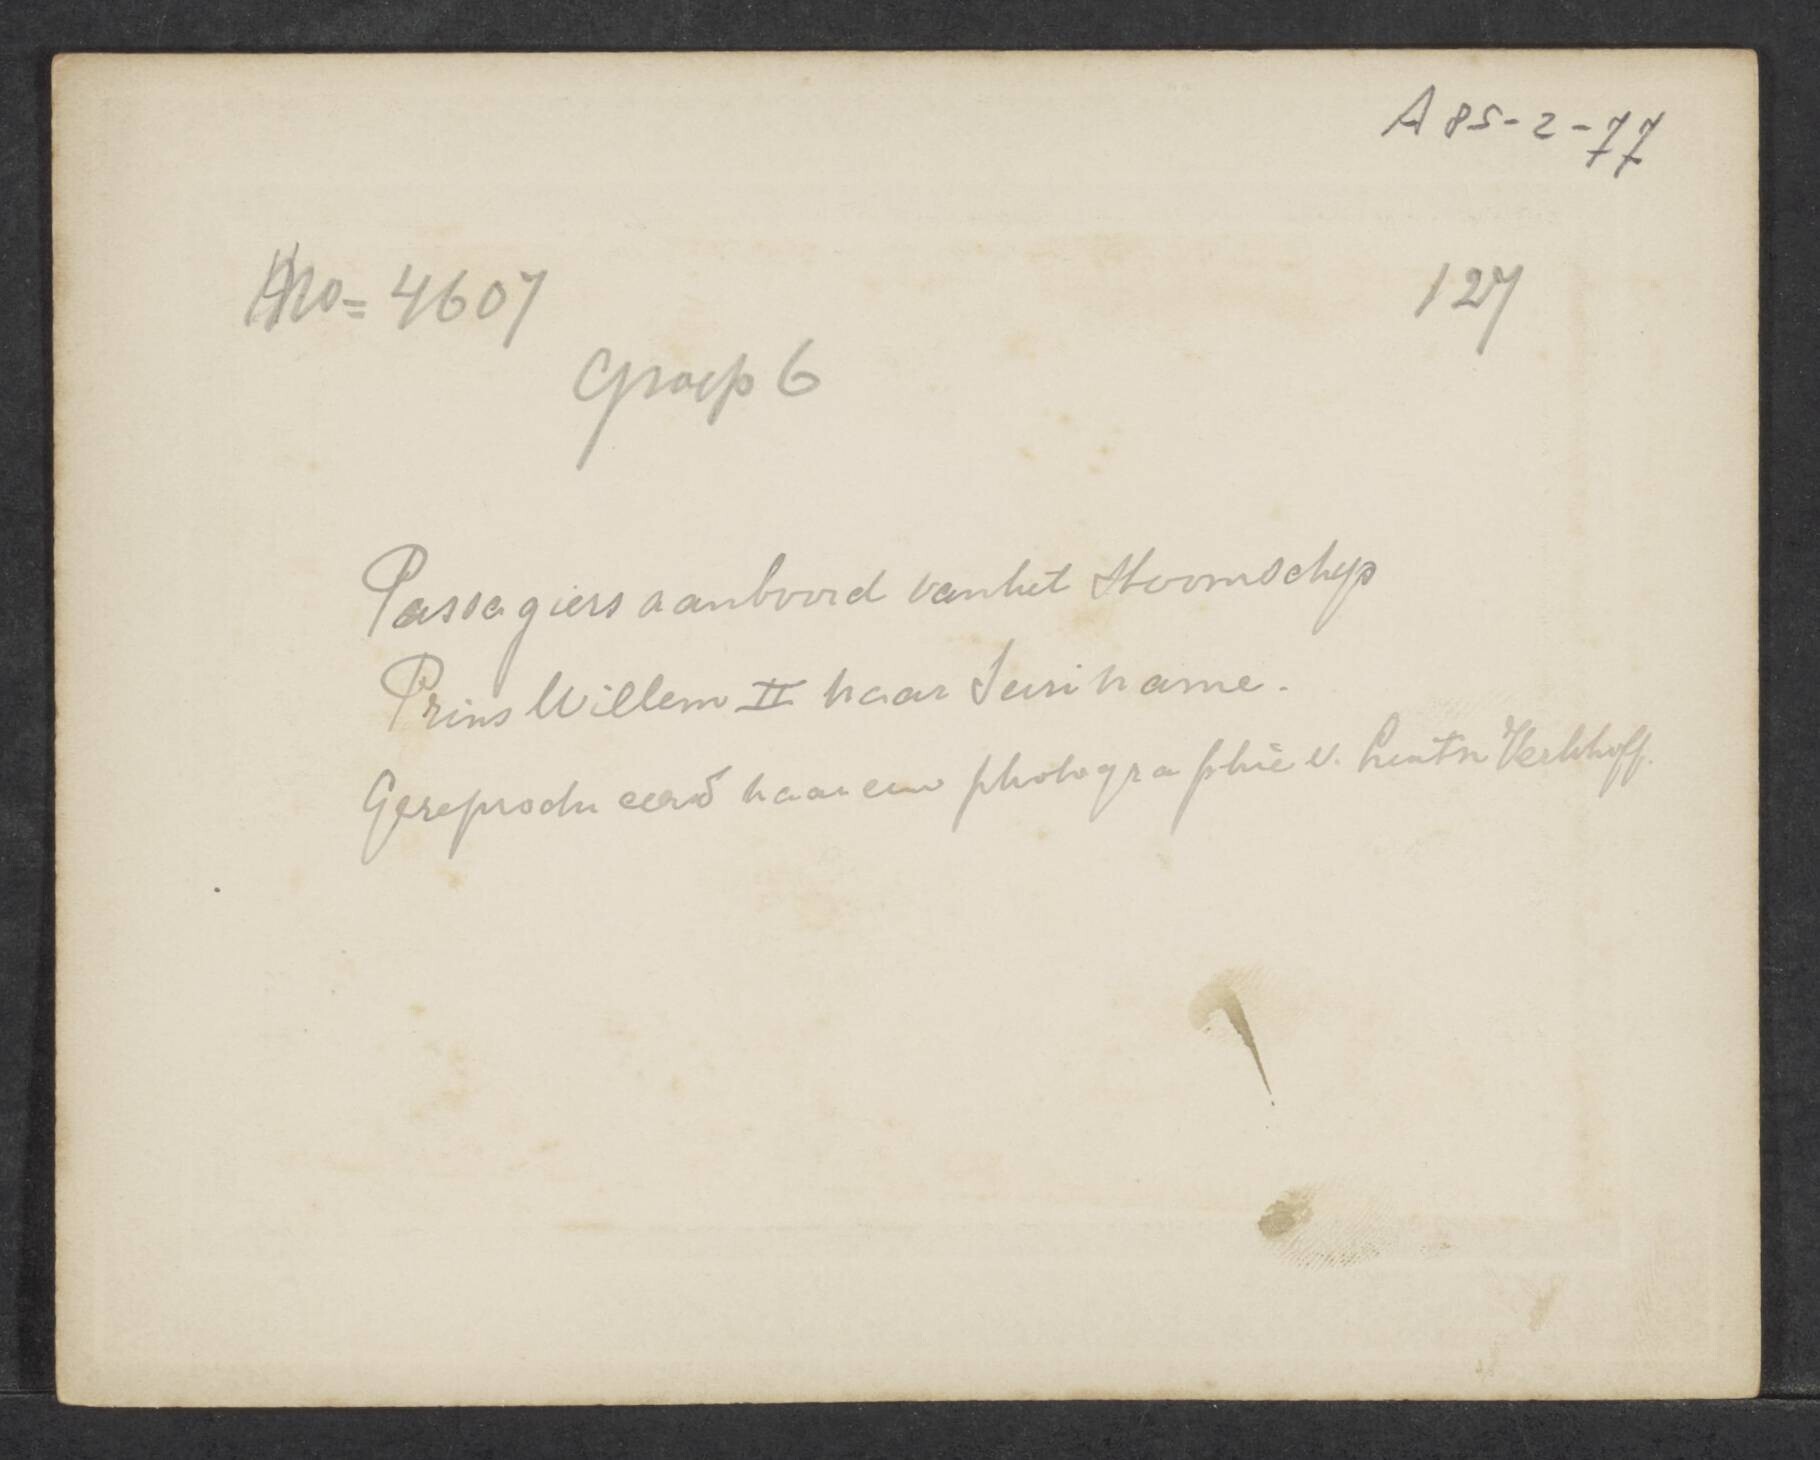 A 85-2-77
No= 4607
127
Groep 6
Passagiers aanboord vanhet Stoomschip
Prins Willem II naar Suriname.
Gereproduceerd naar een photographie v. Luitn Verkhoff.